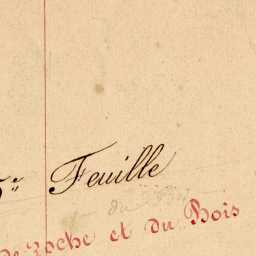 5.e Feuille
de Roche et du Bois